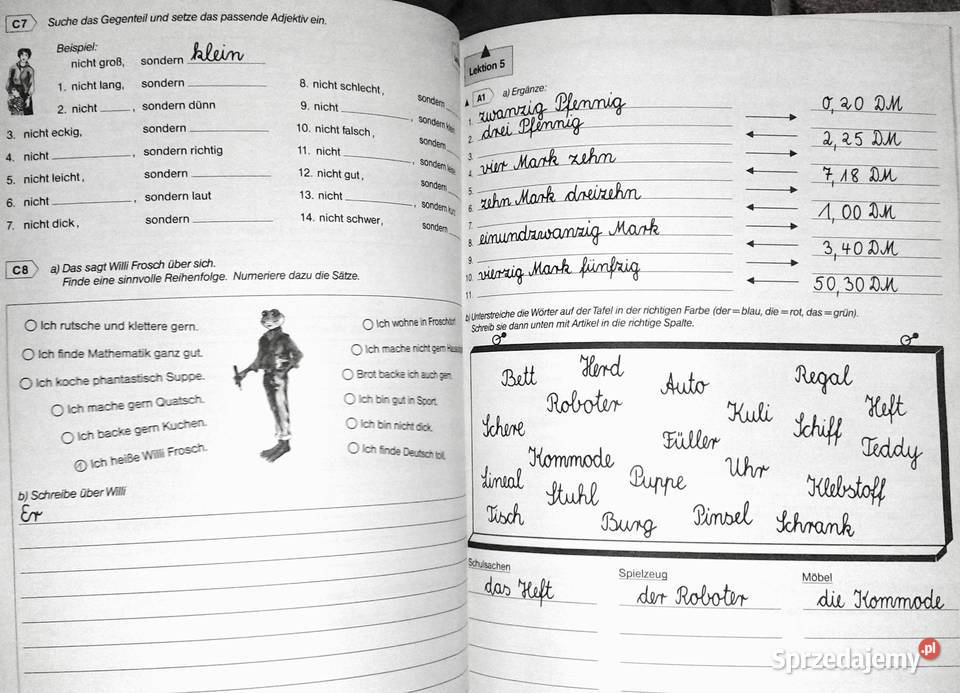 C7 Suche das Gegenteil und setze das passende Adjektiv ein.
Beispiel:
nicht groß, sondern klein
1. nicht lang, sondern
2. nicht , sondern dünn
3. nicht eckig, sondern
4. nicht , sondern richtig
5. nicht leicht, sondern
6. nicht , sondern laut
7. nicht dick, sondern
8. nicht schlecht, sondern
9. nicht , sondern klein
10. nicht falsch, sondern
11. nicht , sondern
12. nicht gut, sondern
13. nicht , sondern kurz
14. nicht schwer, sondern
C8 a) Das sagt Willi Frosch über sich.
Finde eine sinnvolle Reihenfolge. Numeriere dazu die Sätze.
Ich rutsche und klettere gern.
Ich finde Mathematik ganz gut.
Ich koche phantastisch Suppe.
Ich mache gern Quatsch.
Ich backe gern Kuchen.
1 Ich heiße Willi Frosch.
Ich wohne in Froschdorf
Ich mache nicht gern
Brot backe ich auch gern.
Ich bin gut in Sport.
Ich bin nicht dick.
Ich finde Deutsch toll.
b) Schreibe über Willi
Er
Lektion 5
A1 a) Ergänze:
1. zwanzig Pfennig 0,20 DM
2. drei Pfennig
3. 2,25 DM
4. vier Mark zehn
5. 7,18 DM
6. zehn Mark dreizehn
7. 1,00 DM
8. einundzwanzig Mark
9. 3,40 DM
10. vierzig Mark fünfzig
11. 50,30 DM
b) Unterstreiche die Wörter auf der Tafel in der richtigen Farbe (der=blau, die=rot, das=grün).
Schreib sie dann unten mit Artikel in die richtige Spalte.
Bett Herd Auto Regal
Roboter Kuli Heft
Schere Füller Schiff Teddy
Kommode Uhr
Lineal Stuhl Puppe Klebstoff
Tisch Burg Pinsel Schrank
Schulsachen Spielzeug Möbel
das Heft der Roboter die Kommode
Sprzedajemy.pl